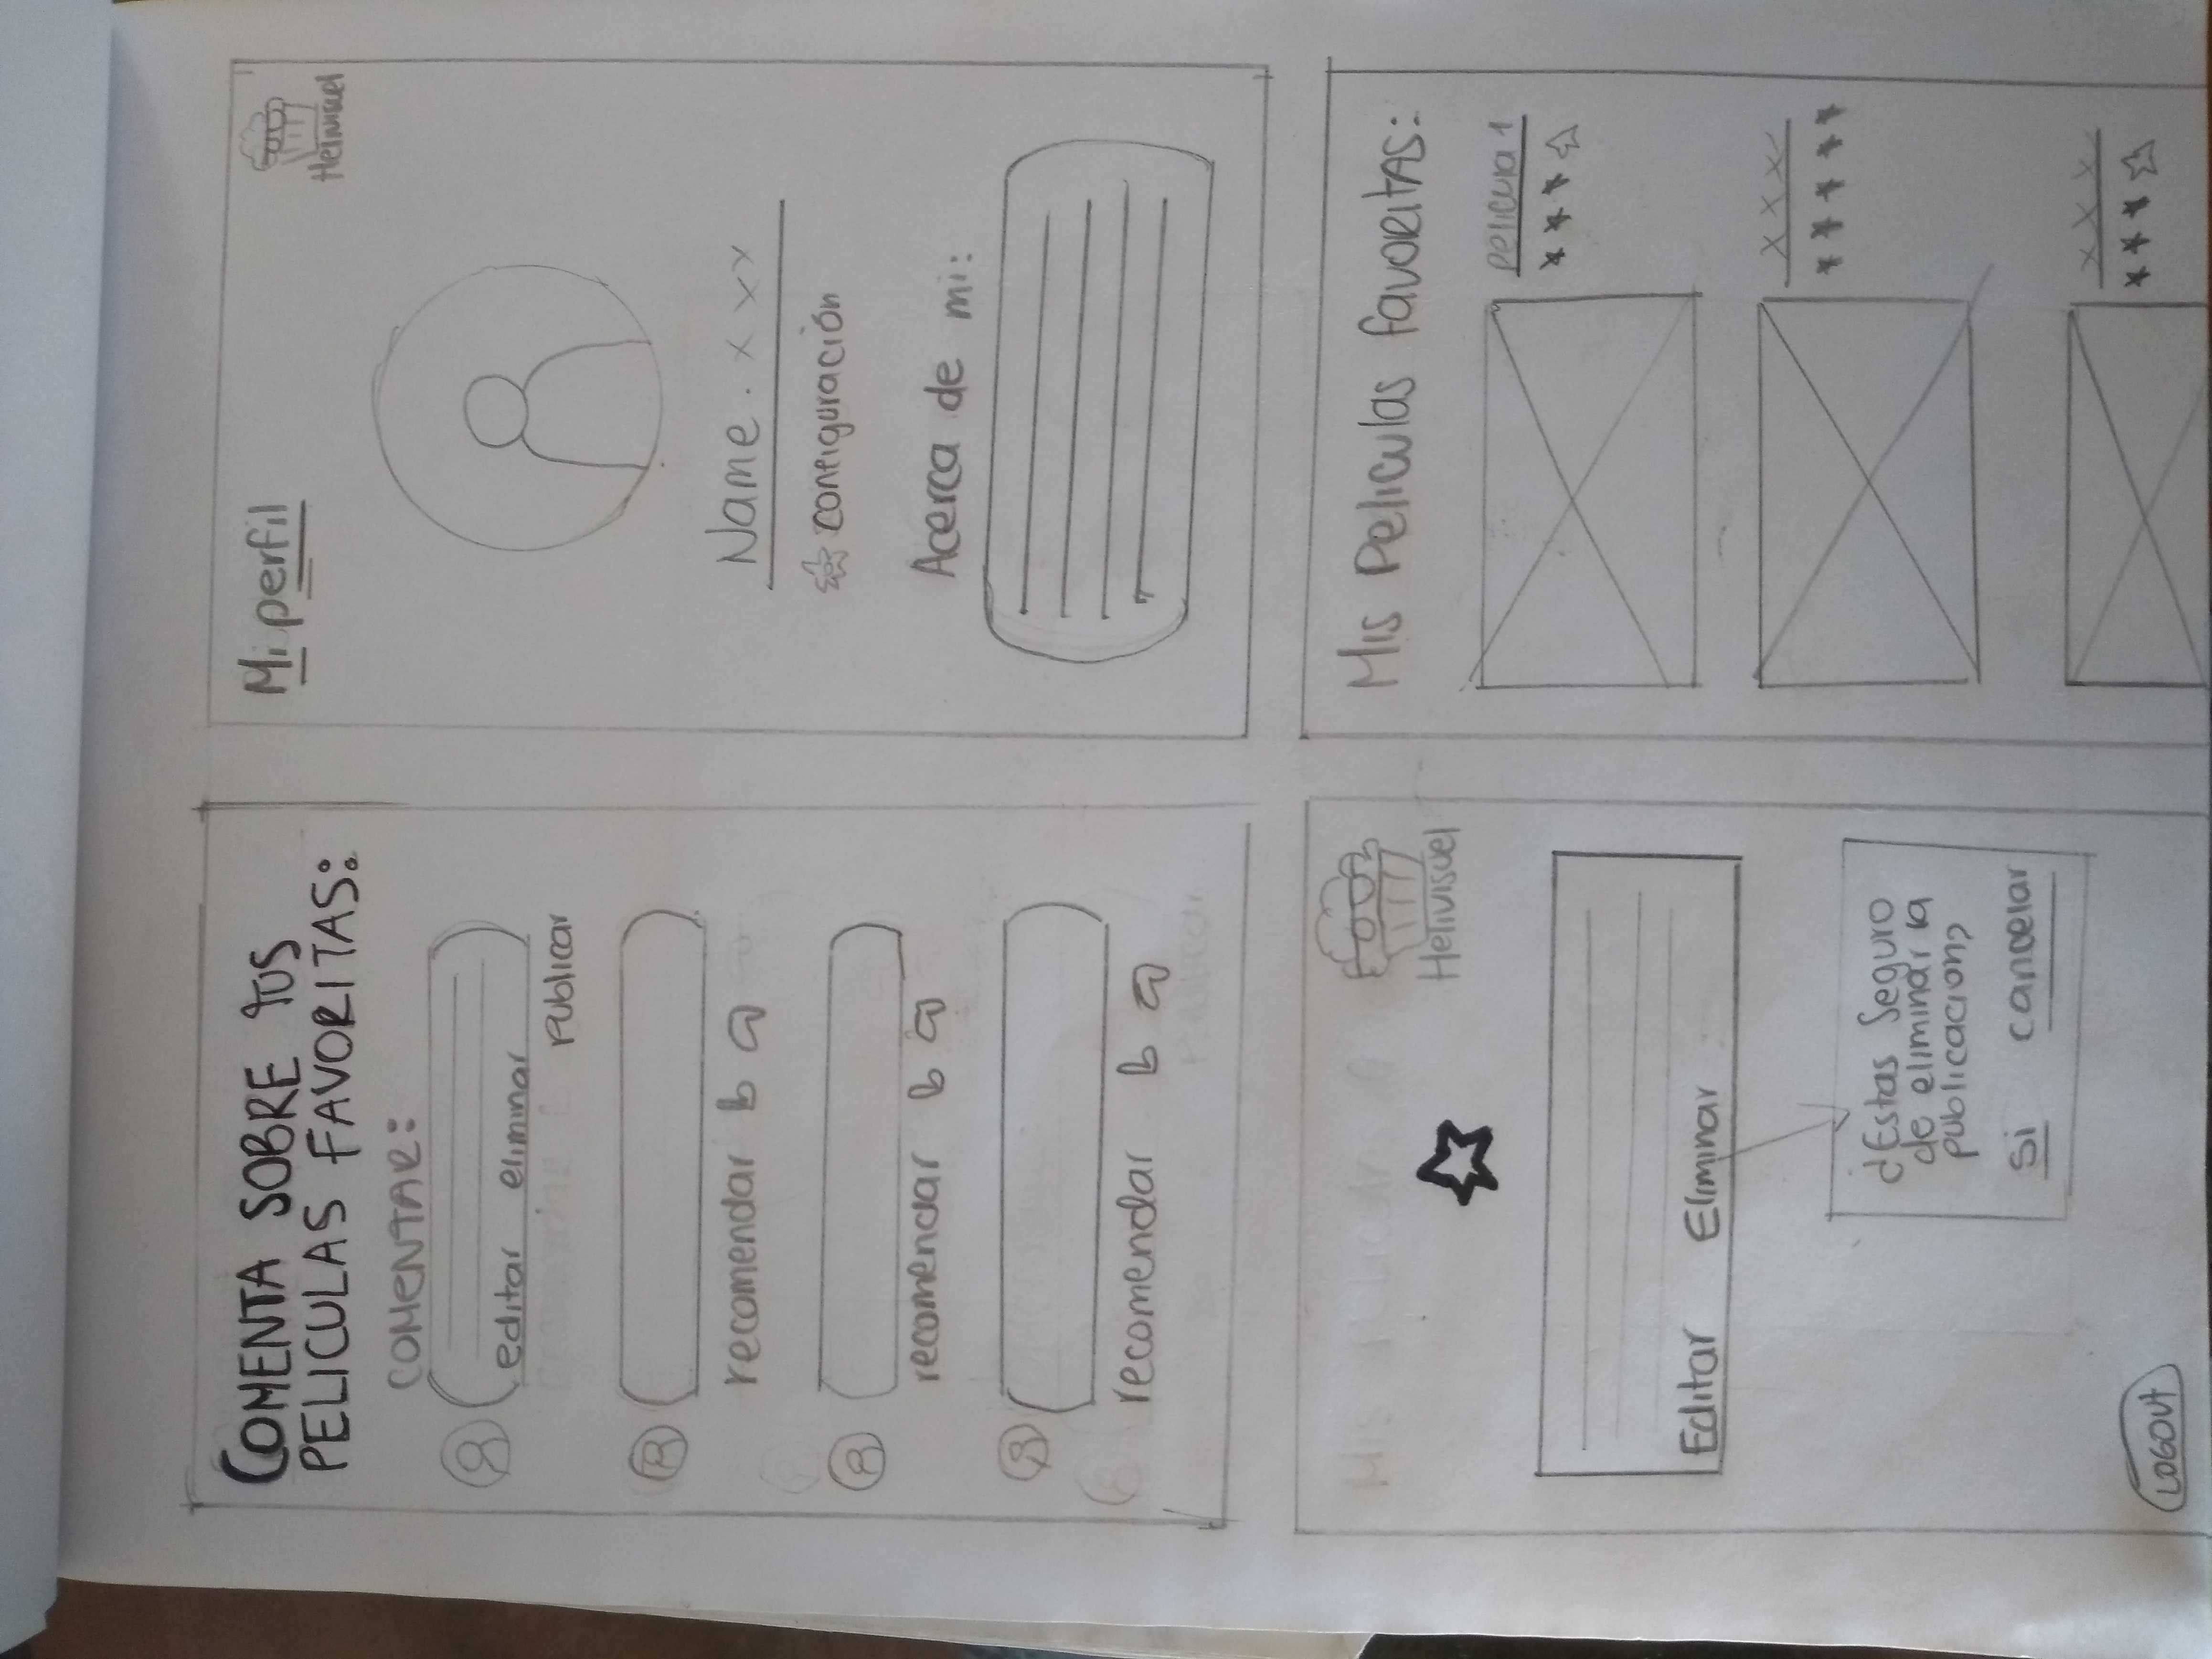 COMENTA SOBRE tUS
PELICULAS FAVORITAS:
COMENTAR:
editar eliminar
Publicar
recomendar
recomendar
recomendar
Mi perfil
Name. x x x
configuración
Acerca de mi:
Hetivisuel
Editar Eliminar
¿Estas Seguro
de eliminar la
publicacion?
si cancelar
LOGOUt
Mis Peliculas favORitAS:
pelicula 1
x x x
x x x